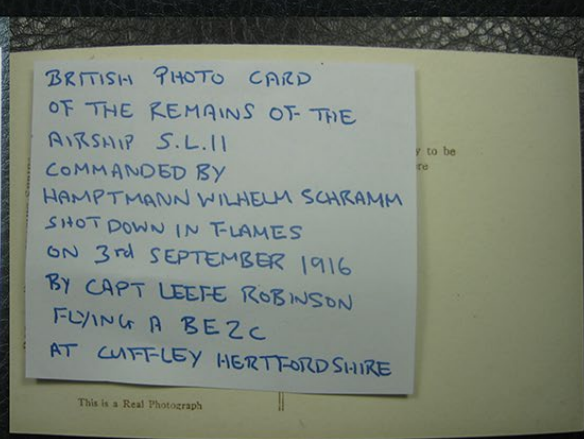 BRITISH PHOTO CARD
OF THE REMAINS OF THE
AIRSHIP S.L.11
COMMANDED BY
HAMPTMANN WILHELM SCHRAMM
SHOT DOWN IN FLAMES
ON 3rd SEPTEMBER 1916
BY CAPT LEEFE ROBINSON
FLYING A BE2C
AT CUFFLEY HERTFORDSHIRE
to be
This is a Real Photograph